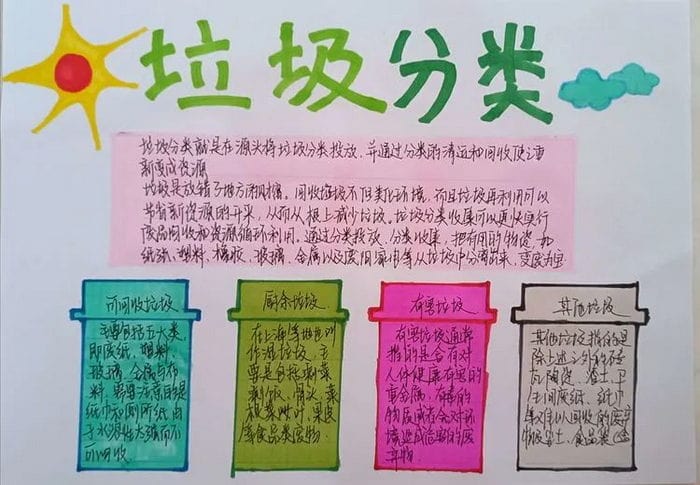 垃圾分类
垃圾分类就是在源头将垃圾分类投放,并通过分类的清运和回收使之重
新变成资源
垃圾是放错了地方的。回收垃圾不但美化环境,而且垃圾再利用可以
节省新资源的开采,从而从根上减少垃圾。垃圾分类收集可以更快实行
废品回收和资源循环利用。通过分类投放、分类收集,把有用的物资,如
纸张、塑料、橡胶、玻璃、金属以及废旧家用等从垃圾中分离出来,变废为宝
可回收垃圾
主要包括五大类,
即废纸、塑料、
玻璃、金属与布
料,需要注意的是
纸巾和厕所纸由
于水溶性太强而不
可回收
厨余垃圾
在上海等地也叫
垃圾,主
要是包括剩菜
剩饭、骨头、菜
根菜叶、果皮
等食品类废物
有害垃圾
有害垃圾通常
指的是含有对
人体健康有害的
重金属,有毒的
物质或者会对环
境造成危害的废
弃物
其他垃圾
其他垃圾指的是
除上述之外的砖
瓦陶瓷、渣土、卫
生间废纸、纸巾
等难以回收的废弃
物